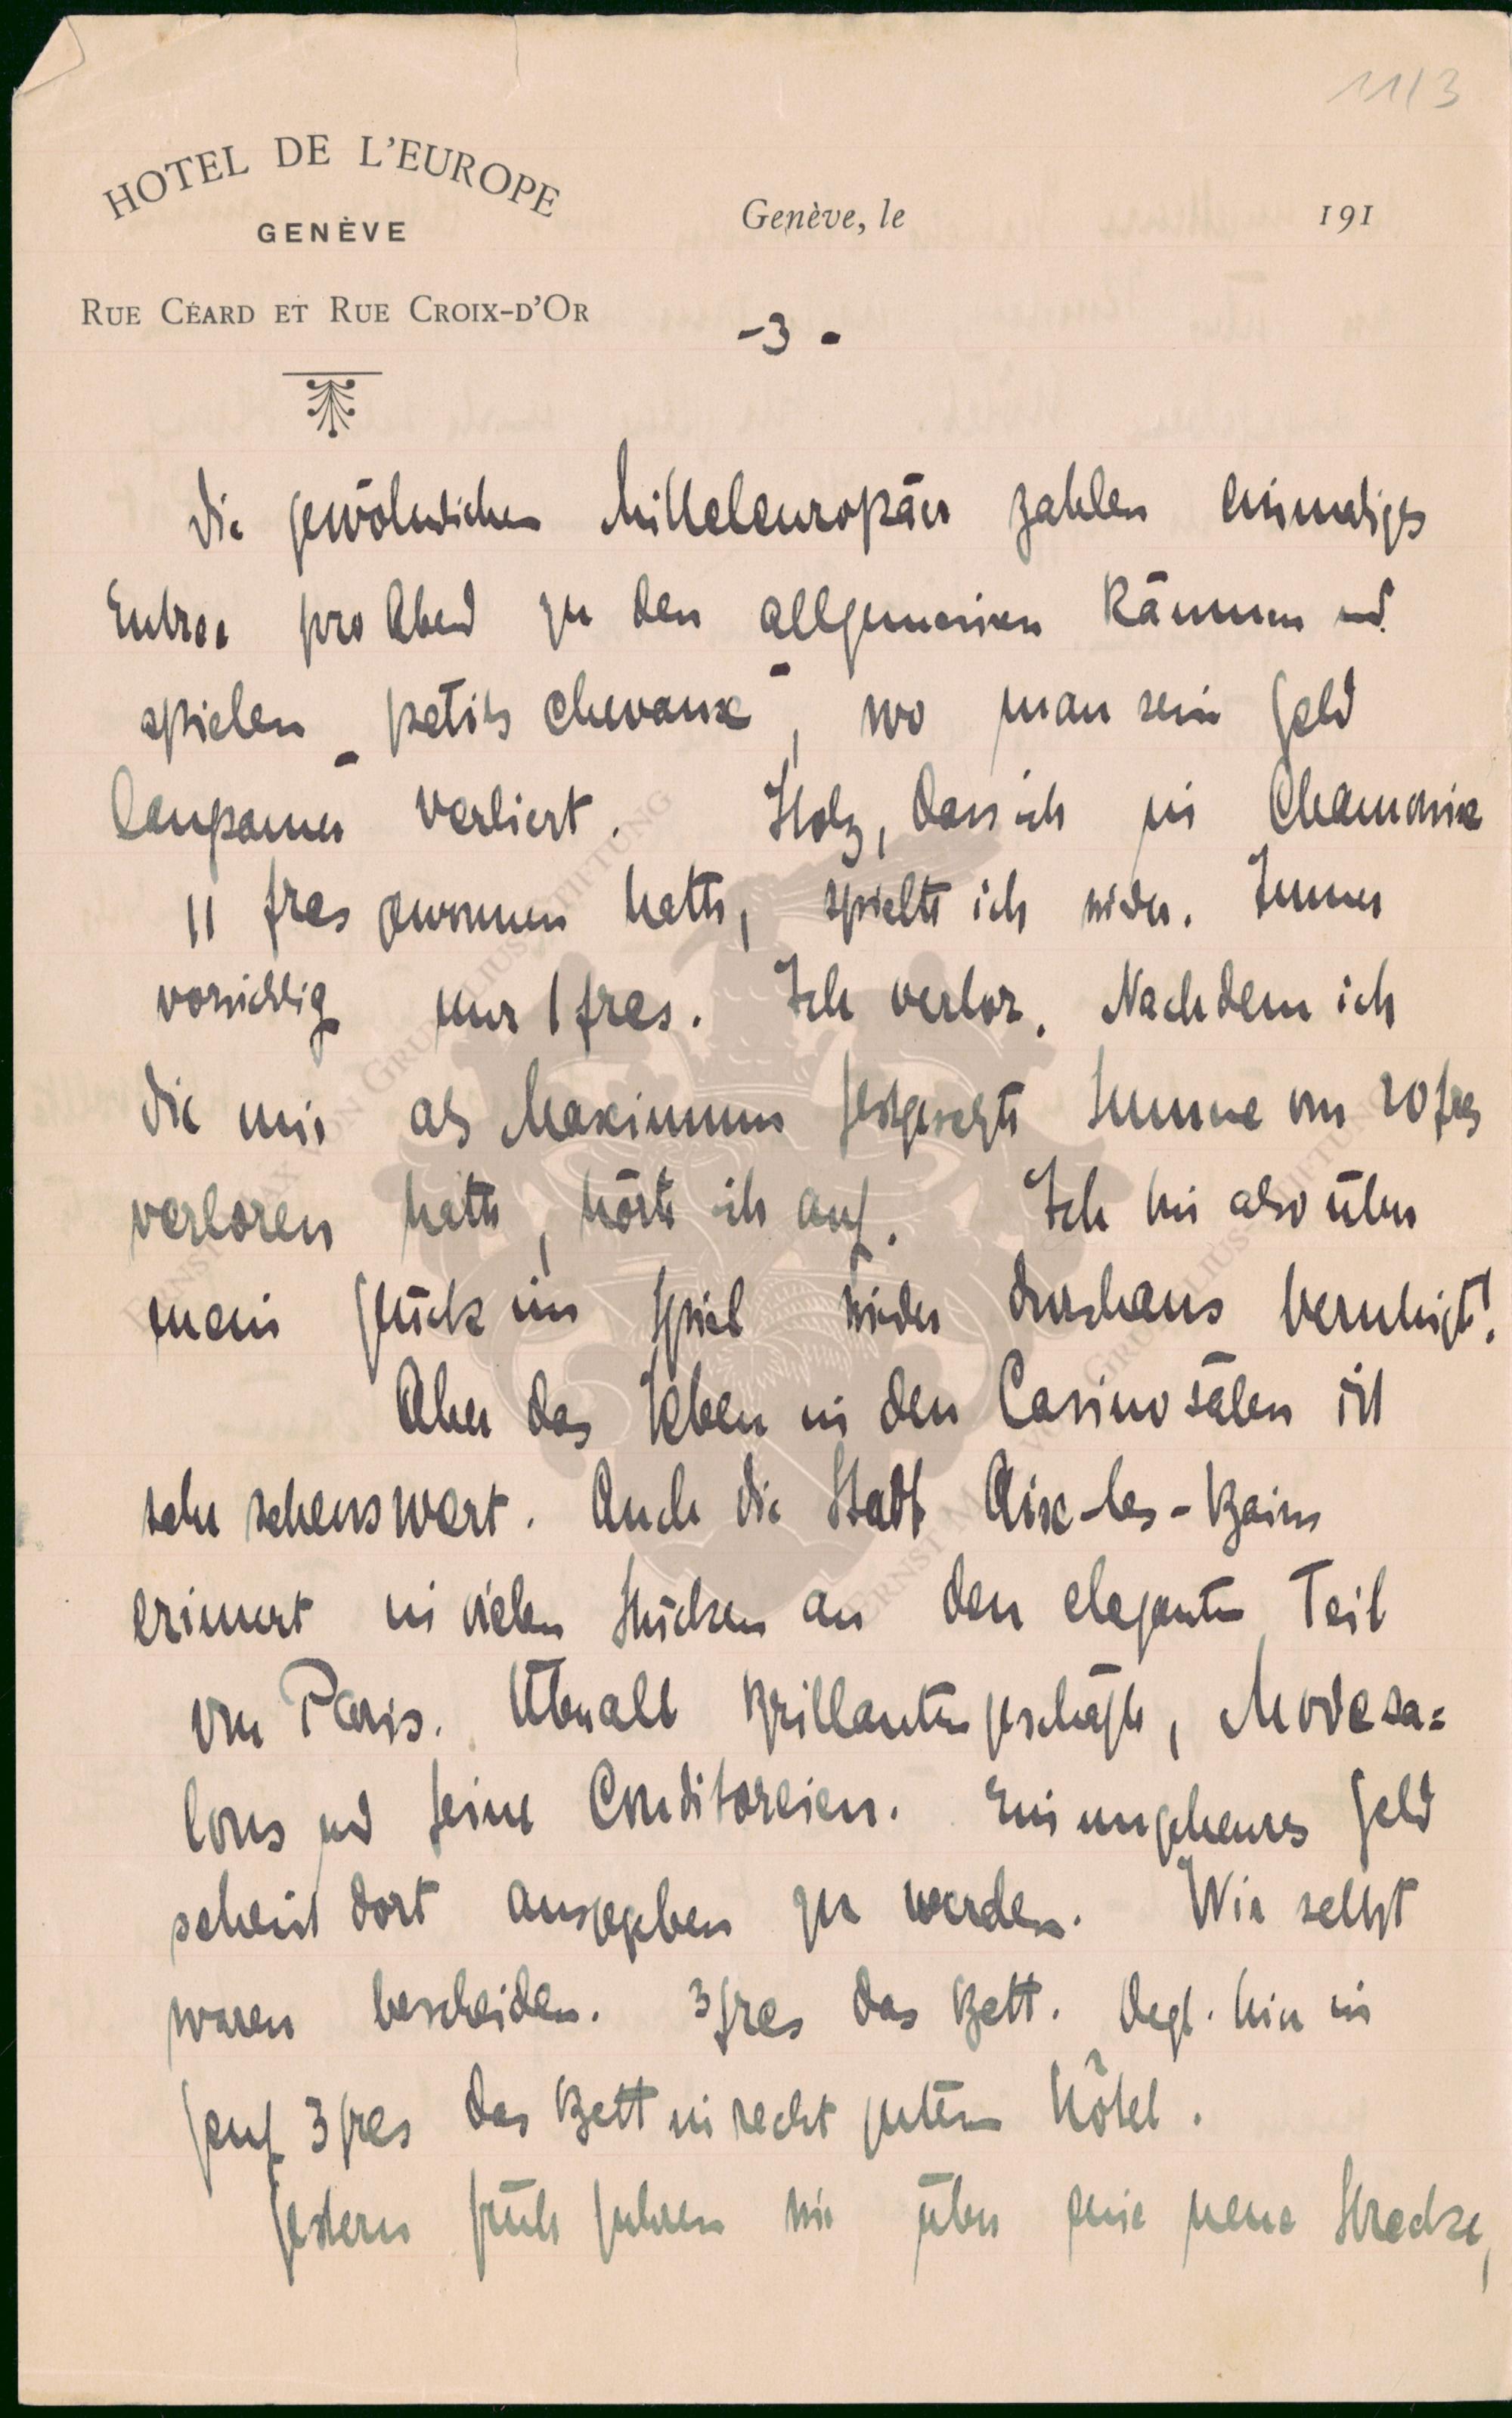 11/3
HOTEL DE L'EUROPE
GENÈVE
RUE CÉARD ET RUE CROIX-D'OR
Genève, le 191
- 3 -
Die gewöhnlichen Mitteleuropäer zahlen einmaliges
Entree pro Abend zu den allgemeinen Räumen und
spielen "petits chevaux", wo man sein Geld
langsamer verliert. Stolz, dass ich in Chamonix
11 frcs gewonnen hatte, spielte ich wieder. Immer
vorsichtig nur 1 frcs. Ich verlor. Nachdem ich
die mir als Maximum festgesetzte Summe von 20 frcs
verloren hatte, hörte ich auf. Ich bin also über
mein Glück im Spiel wieder durchaus beruhigt!
Aber das Leben in den Casinosälen ist
sehr sehenswert. Auch die Stadt Aix-les-Bains
erinnert in vielen Stücken an den eleganten Teil
von Paris. Überall Brillantengeschäfte, Modesa=
lons und feine Conditoreien. Ein ungeheures Geld
scheint dort ausgegeben zu werden. Wir selbst
waren bescheiden. 3 frcs das Bett. Degl. hier in
Genf 3 frcs das Bett in recht gutem Hôtel.
Gestern früh fuhren wir über eine neue Strecke,
ERNST MAX VON GRUNELIUS-STIFTUNG
ERNST MAX VON GRUNELIUS-STIFTUNG